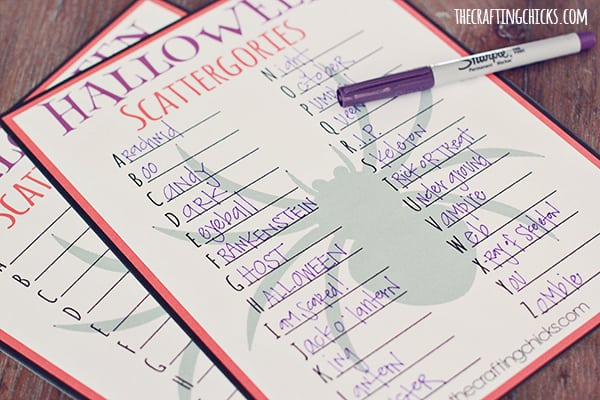 THECRAFTINGCHICKS.COM
HALLOWEEN
SCATTERGORIES
Arachnid
BOO
Candy
DARK
Eyeball
FRANKENSTEIN
GHOST
HALLOWEEN
I am scared!
Jack o' lantern
King
Lantern
Night
October
Queen
R.I.P.
Skeleton
Trick OR Treat
Underground
Vampire
Web
Xray of skeleton
You
Zombies
Sharpie
Permanent Marker
thecraftingchicks.com
EEN
SCA
A
B
C
D
E
F
G
H